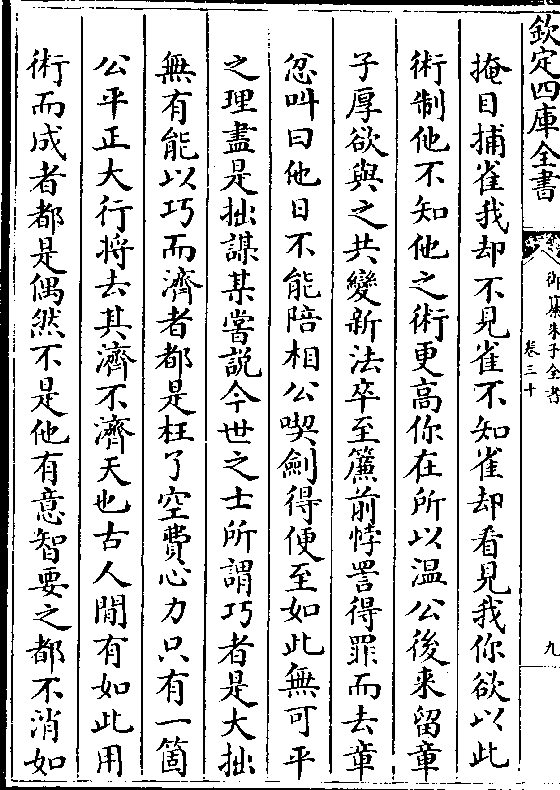 欽定四庫全書
御纂朱子全書
卷三十
九
掩目捕雀我却不見雀不知雀却看見我你欲以此
術制他不知他之術更高你在所以温公後来留章
子厚欲與之共變新法卒至簾前悖詈得罪而去章
忿叫曰他日不能陪相公喫劍得便至如此無可平
之理盡是拙謀某嘗説今世之士所謂巧者是大拙
無有能以巧而濟者都是枉了空費心力只有一箇
公平正大行將去其濟不濟天也古人間有如此用
術而成者都是偶然不是他有意智要之都不消如